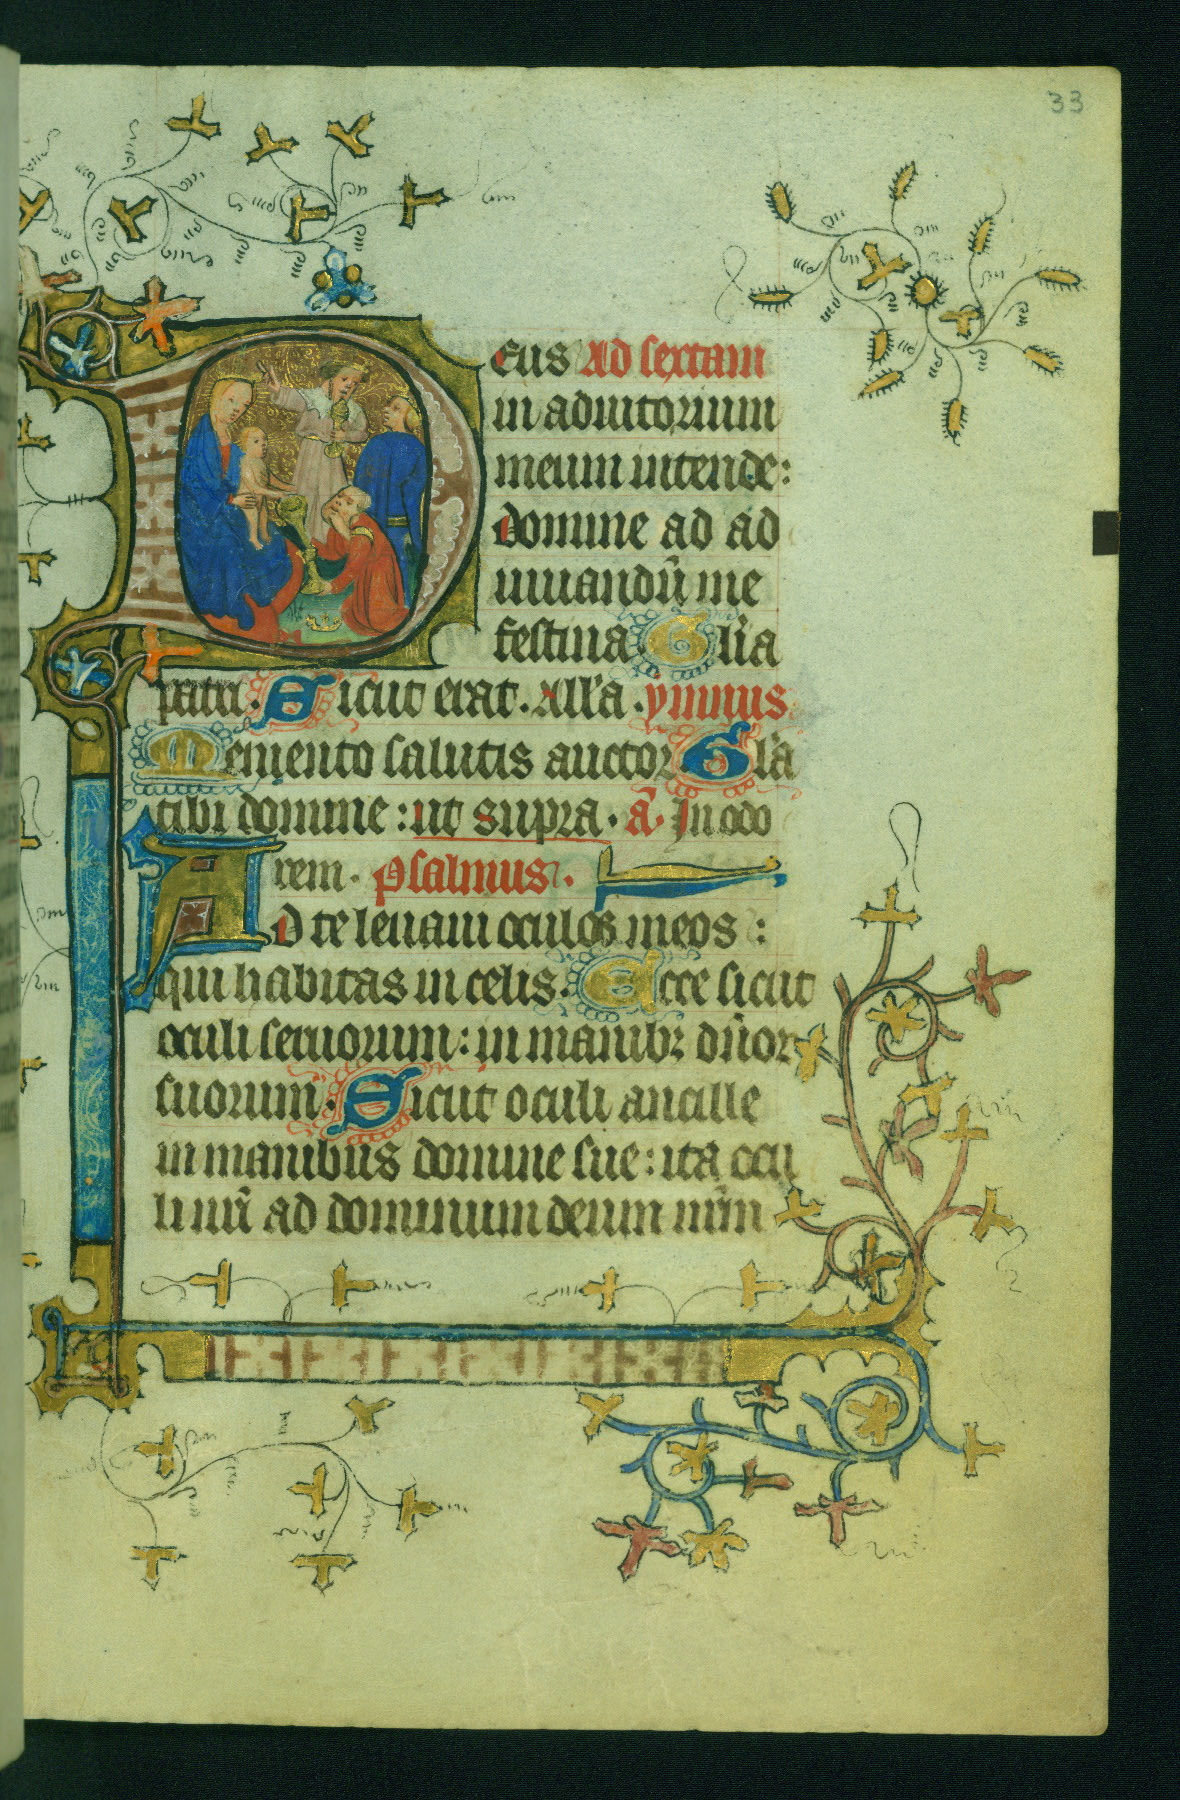 33
Deus Ad sextam
in adiutorium
meum intende:
domine ad ad
iuuandū me
festina Gl'ia
patri. Sicut erat. All'a. ymnus
Memento salutis auctor Gl'a
tibi domine: ut supra. ā. In odo
rem. psalmus.
AD te leuaui oculos meos:
qui habitas in celis. Ecce sicut
oculi seruorum: in manibꝫ dn̄oꝝ
suorum. Sicut oculi ancille
in manibus domine sue: ita ocu
li nr̄i ad dominum deum nr̄m